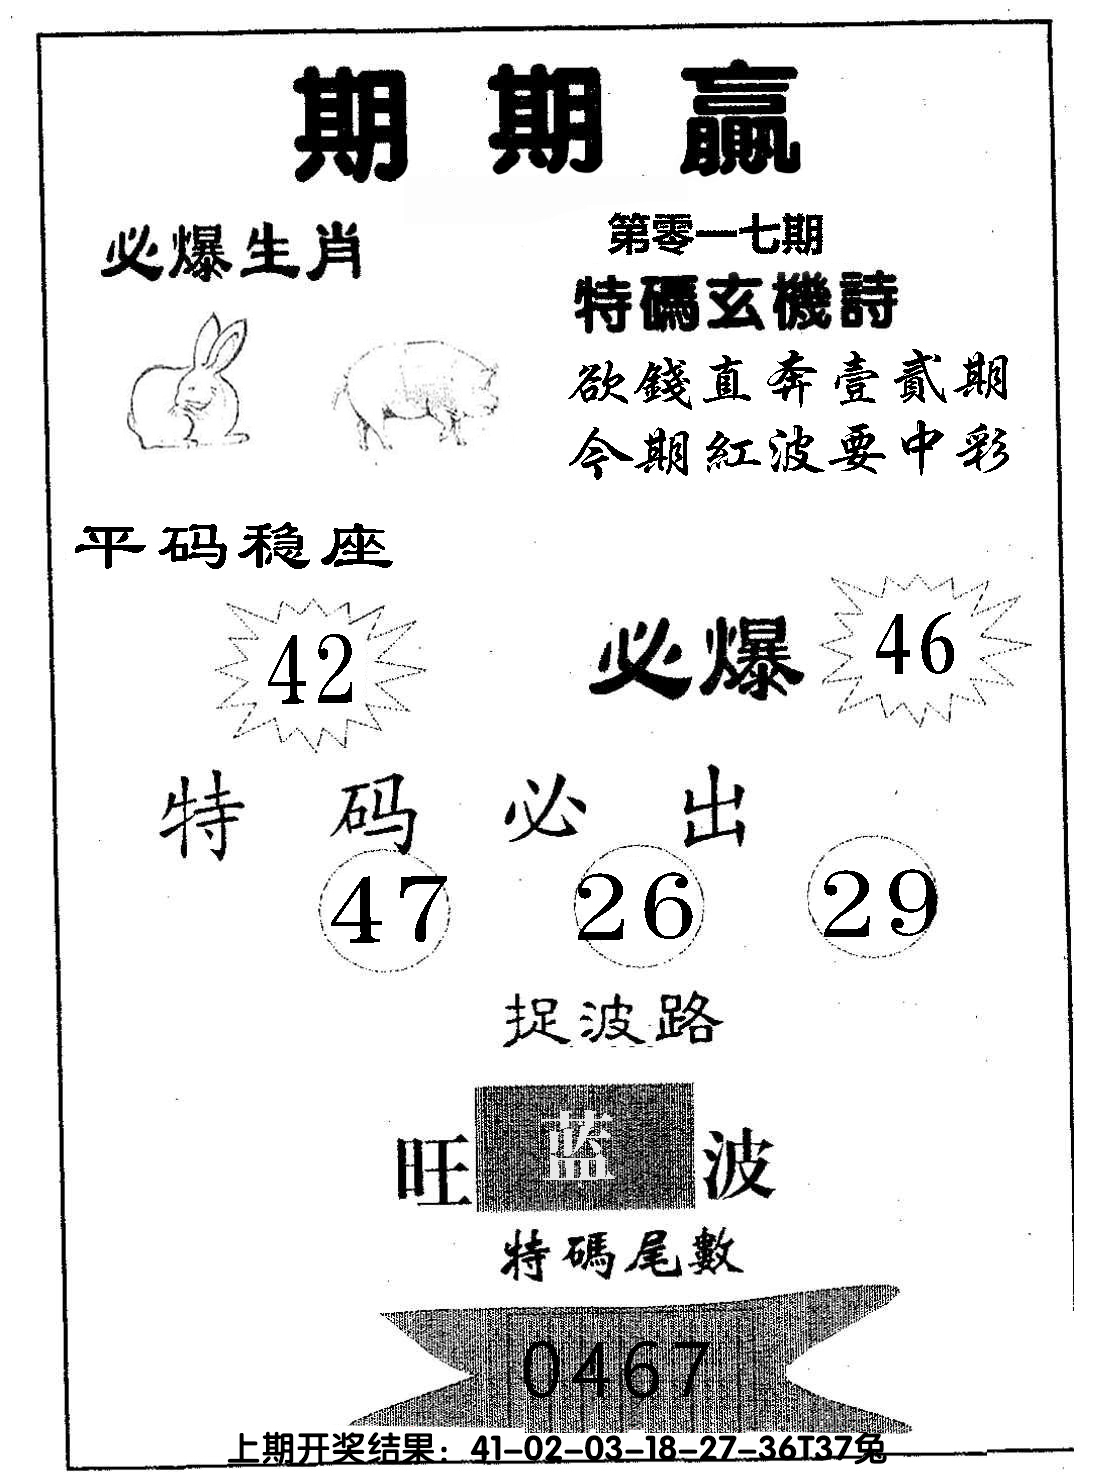 期期赢
必爆生肖
第零一七期
特碼玄機詩
欲錢直奔壹貳期
今期紅波要中彩
平码稳座
42
必爆 46
特码必出
47 26 29
捉波路
旺 蓝 波
特碼尾數
0467
上期开奖结果：41-02-03-18-27-36T37兔